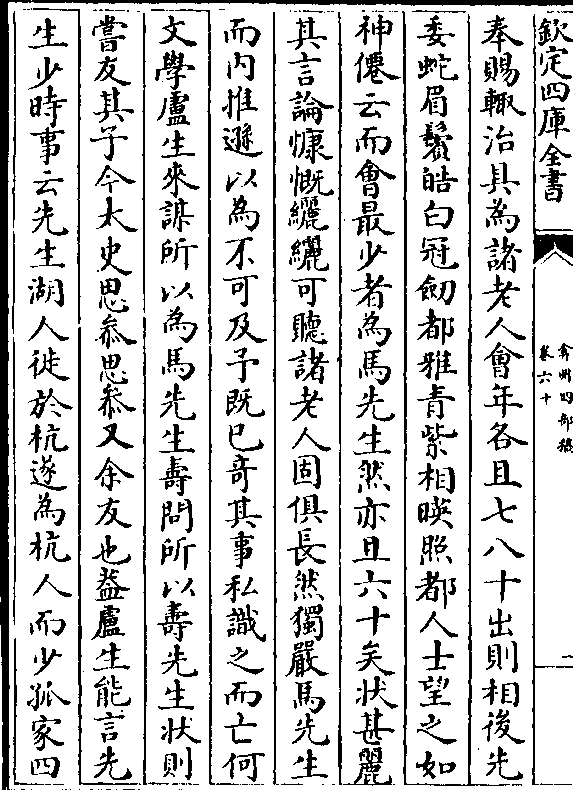 欽定四庫全書
弇州四部稿
卷六十
二
奉賜輙治具為諸老人㑹年各且七八十出則相後先
委蛇眉鬢皓白冠劒都雅青紫相暎照都人士望之如
神僊云而㑹最少者為馬先生然亦且六十矣狀甚麗
其言論慷慨纚纚可聽諸老人固俱長然獨嚴馬先生
而内推遜以為不可及予既已竒其事私識之而亡何
文學盧生來謀所以為馬先生壽問所以壽先生状則
嘗友其子今太史思恭思恭又余友也葢盧生能言先
生少時事云先生湖人徙於杭遂為杭人而少孤家四